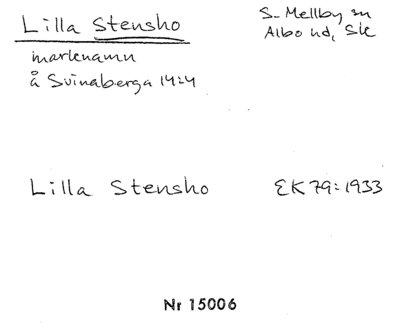 Lilla Stensho
S. Mellby sn
Albo hd, Sk
marknamn
å Svinaberga 14:4
Lilla Stensho
EK 79:1933
Nr 15006